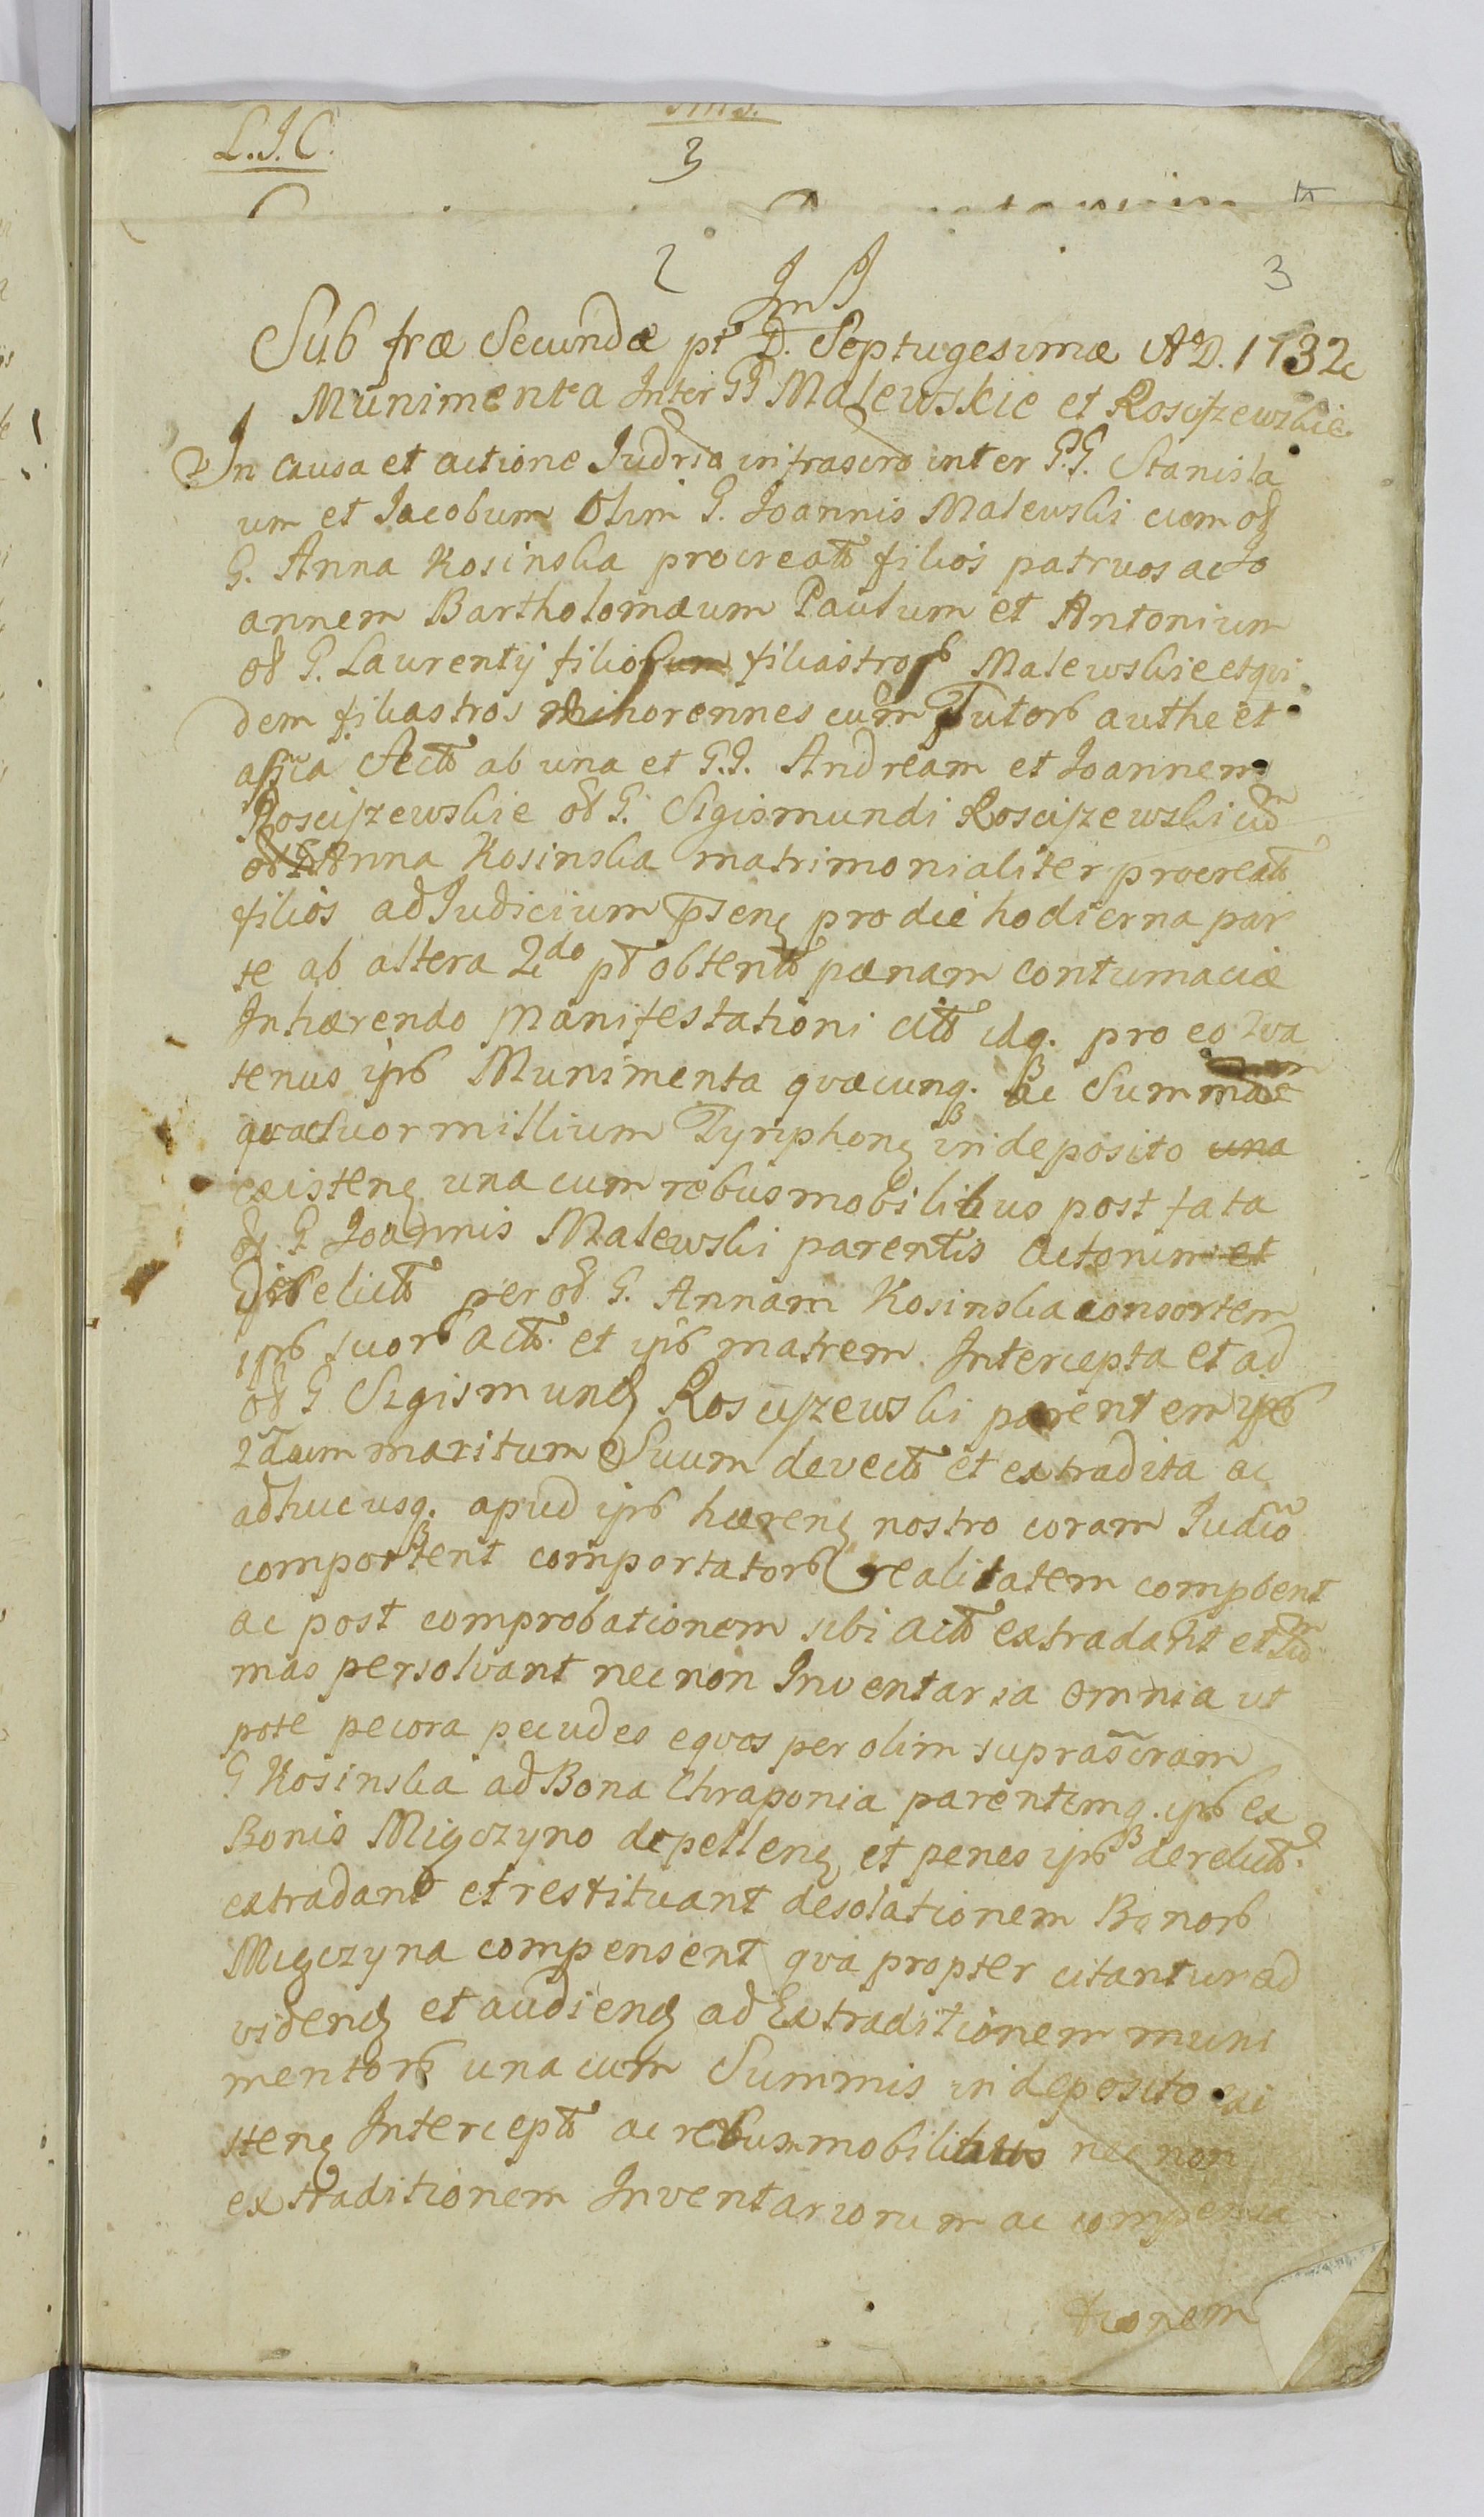 L.J.C.
3
2
3
Sub fræ Secundæ pt D. Septugesimæ A D. 1732
Munimenta Inter GG Malewskie et Roscijzewskie
In causa et actione Iudria infrascro inter G.G. Stanisla
um et Jacobum Olim G. Joannis Malewski cum
G. Anna Kosinska procreatt filios patruos ac Jo
annem Bartholomæum Paulum et Antonium
G. Laurentij filios filiastros Malewskie et qvi
dem filiastros minorennes cum Tutorb authe et
ab una et G.G. Andream et Joannem
Roscijzewskie G. Sigismundi Roscijzewski
Anna Kosinska matrimonialiter procreatt
filios ad Judicium pro die hodierna par
te ab altera 2do obtentt pænam contumaciæ
Inhærendo Manifestationi idq. pro eo Qva
tenus ipb Munimenta qvæcunq. ac Summas
qvactuor millium Tymphonʒ in deposito una
existenʒ una cum rebus mobilibus post fata
G Joannis Malewski parentis Actorum et
per G. Annam Kosinska consortem
ipb suorb Act. et ipb matrem Intercepta et ad
G Sigismundʒ Roscijzewski parentem ipb
2dum maritum Suum devectt et extradita ac
adhucusq. apud ipb hærenʒ nostro coram Judio
comportent comportatorb realitatem compbent
ac post comprobationem sibi actt extradant et Sum
mas persolvant nec non Inventaria omnia ut
pote pecora pecudes eqvos per olim suprascram
G Kosinska ad Bona Chraponia parentemq. ipb ex
Bonis Migczyno depellenʒ et penes ipb derelictt.
extradant et restituant desolationem Bonorb
Migczyna compensent qva propter citantur ad
videndʒ et audiendʒ ad Extraditionem muni
mentorb una cum Summis in deposito exi
stenʒ Interceptt ac rebus mobilibus nec non
extraditionem Inventariorum ac compensa
tionem